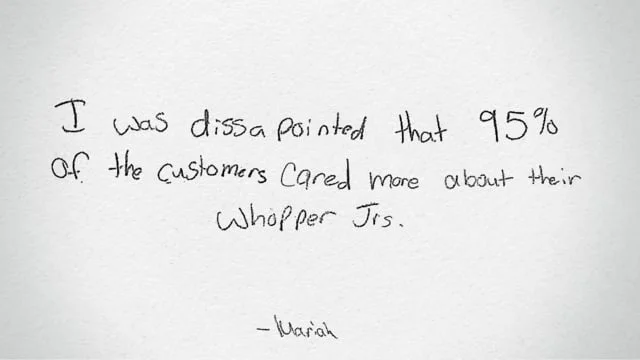 I was dissapointed that 95%
of the customers cared more about their
Whopper Jrs.
- Mariah